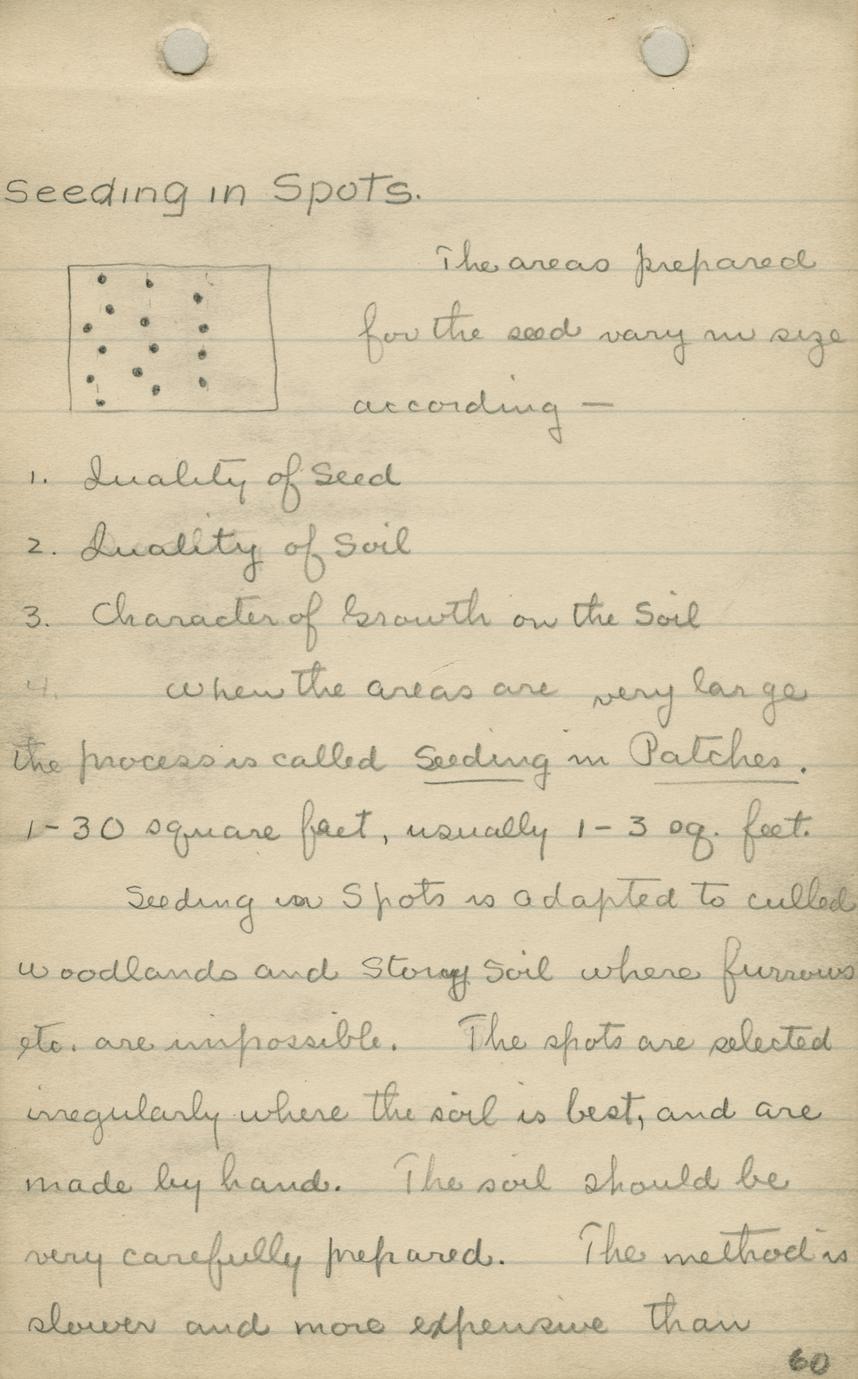 Seeding in Spots.
The areas prepared
for the seed vary in size
according —
1. Quality of Seed
2. Quality of Soil
3. Character of Growth on the Soil
4. When the areas are very large
the process is called Seeding in Patches.
1-30 square feet, usually 1-3 sq. feet.
Seeding in Spots is adapted to culled
woodlands and Stony Soil where furrows
etc. are impossible. The spots are selected
irregularly where the soil is best, and are
made by hand. The soil should be
very carefully prepared. The method is
slower and more expensive than
60